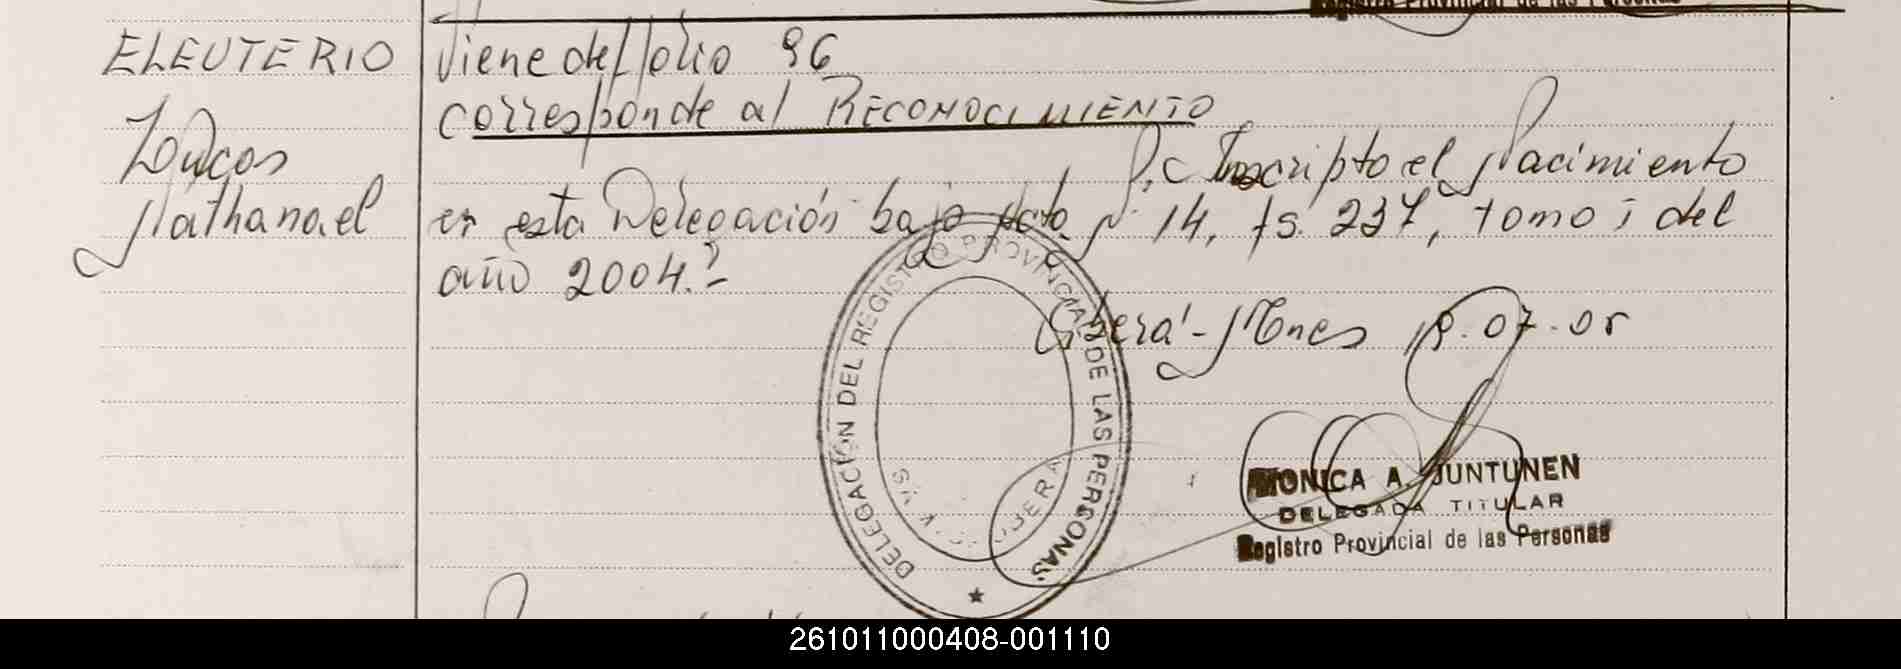 Registro Provincial de las Personas
ELEUTERIO
Nathanael
Viene del folio 96
corresponde al RECONOCIMIENTO
Inscripto el Nacimiento
en esta Delegación bajo Acta Nº 14, fs. 237, tomo i del
año 2004.-
Oberá - Mnes 07.05
DELEGACIÓN DEL REGISTRO PROVINCIAL DE LAS PERSONAS
OBERA
MONICA A. JUNTUNEN
DELEGADA TITULAR
Registro Provincial de las Personas
261011000408-001110